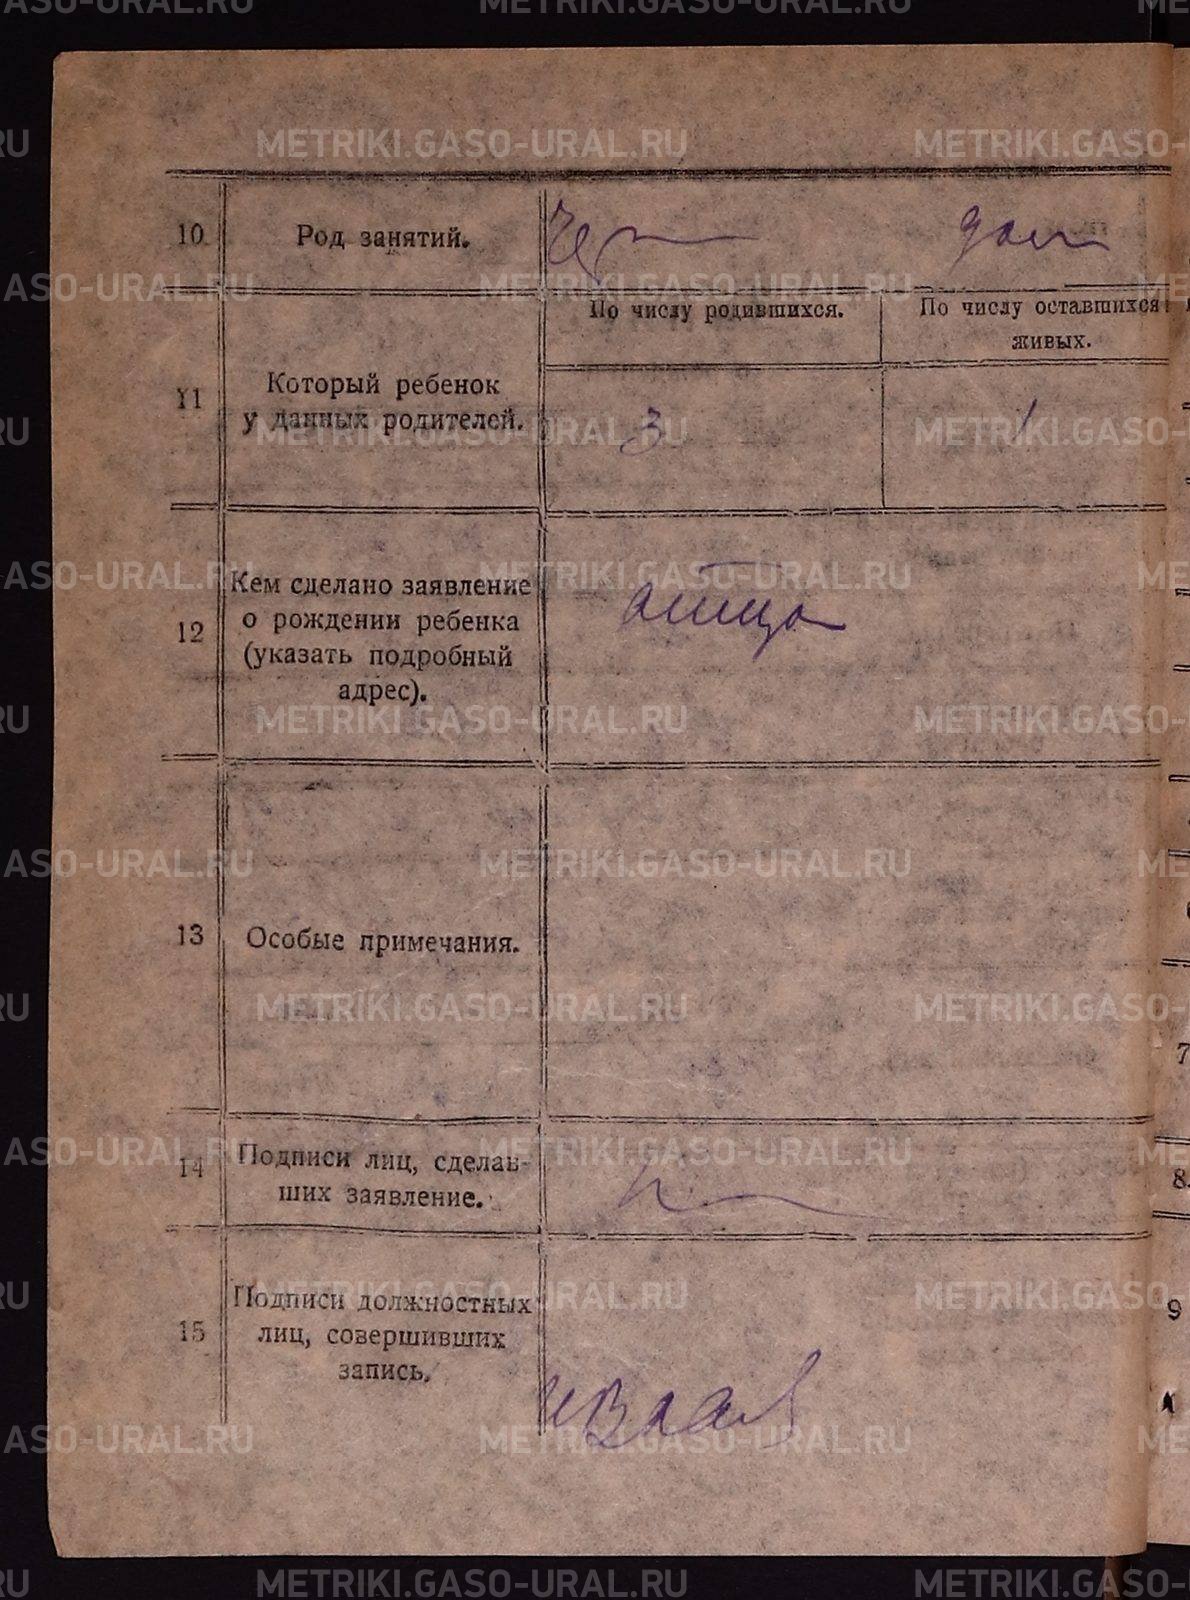 METRIKI.GASO-URAL.RU
10.
Род занятий.
Чер
дом
По числу родившихся.
По числу оставшихся
живых.
11
Который ребенок
у данных родителей.
3
1
12
Кем сделано заявление
о рождении ребенка
(указать подробный
адрес).
отца
13
Особые примечания.
14
Подписи лиц, сделав-
ших заявление.
15
Подписи должностных
лиц, совершивших
запись.
7
8.
9